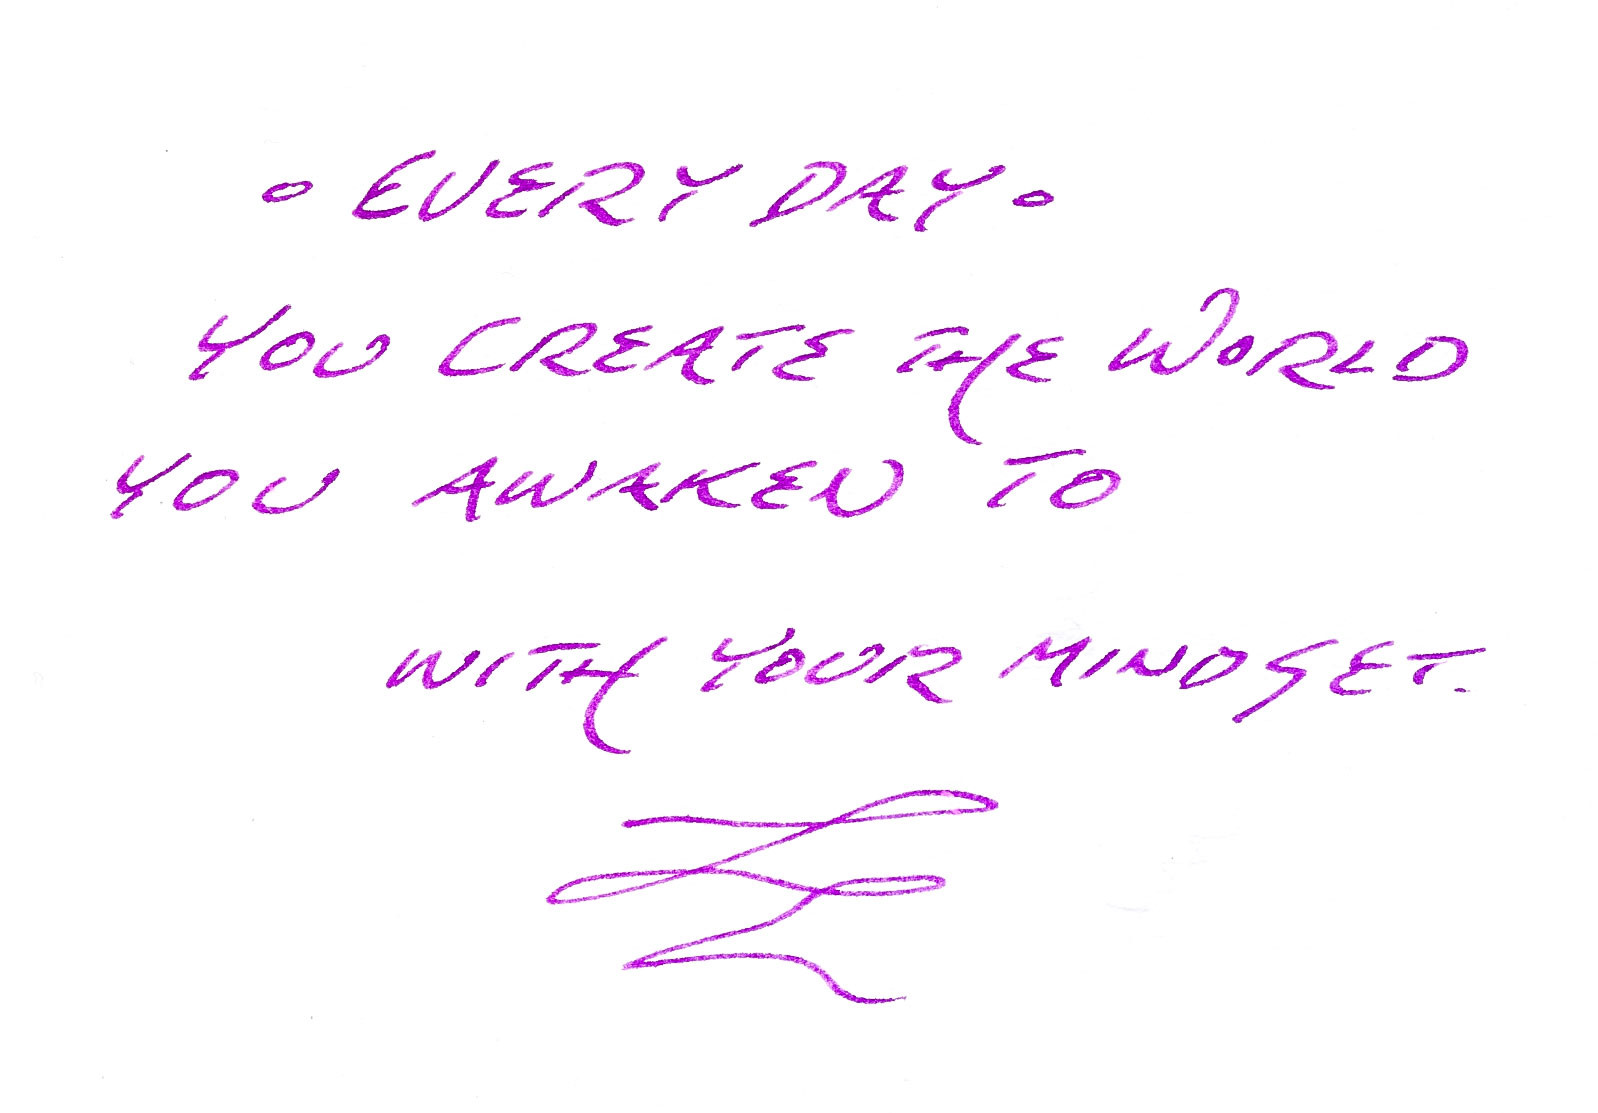 ◦ EVERY DAY ◦
YOU CREATE THE WORLD
YOU AWAKEN TO
WITH YOUR MINDSET.